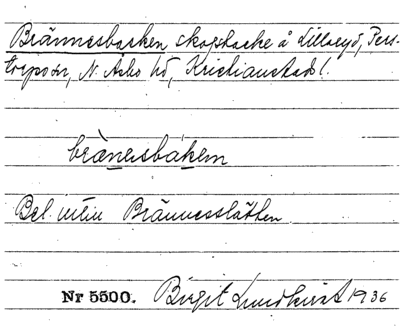 Brännesbacken skogsbacke å Lillseyd, Pers-
torps sn, N. Åsbo hd, Kristianstads l.
brà̀nesbakem
Bel. intill Brännesslätten
Nr 5500. Birgit Lundkvist 1936